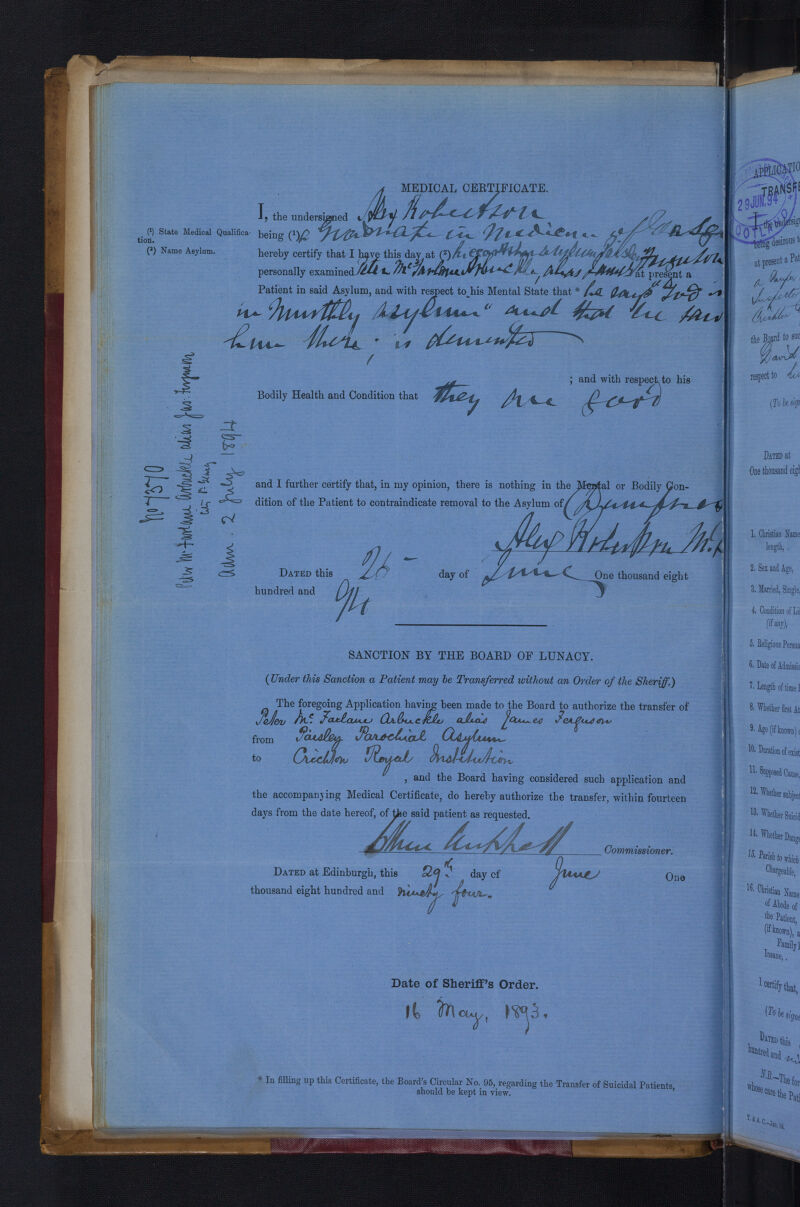 MEDICAL CERTIFICATE.
I, the undersigned Alex Robertson
(¹) State Medical Qualifica-
tion.
being (¹) a Graduate in Medicine of Glasg
(²) Name Asylum.
hereby certify that I have this day, at (²) Asylum Paisley
personally examined Peter McFarlane Arbuckle, alias James Ferguson at present a
Patient in said Asylum, and with respect to his Mental State that * he says "God is
in Murthly Asylum" and that he saw
him there; is demented
; and with respect to his
Bodily Health and Condition that they are good
and I further certify that, in my opinion, there is nothing in the Mental or Bodily Con-
dition of the Patient to contraindicate removal to the Asylum of Dumfries
Alex Robertson M.D
DATED this 26 day of June One thousand eight
hundred and 94
No 7370
Peter McFarlane Arbuckle alias Jas: Ferguson
Adm. 2 July 1894
SANCTION BY THE BOARD OF LUNACY.
(Under this Sanction a Patient may be Transferred without an Order of the Sheriff.)
The foregoing Application having been made to the Board to authorize the transfer of
Peter Mc. Farlane Arbuckle alias James Ferguson
from Paisley Parochial Asylum
to Crichton Royal Institution
, and the Board having considered such application and
the accompanying Medical Certificate, do hereby authorize the transfer, within fourteen
days from the date hereof, of the said patient as requested.
Commissioner.
DATED at Edinburgh, this 29th. day of June One
thousand eight hundred and ninety four.
Date of Sheriff's Order.
16 May, 1893.
* In filling up this Certificate, the Board's Circular No. 95, regarding the Transfer of Suicidal Patients,
should be kept in view.
APPLICATIO
TRANSFE
29 JUN.94
being desirous
at present a Pat
the Board to
David
respect to
(To be sign
DATED at
One thousand eigh
1. Christian Name
length, .
2. Sex and Age,
3. Married, Single,
4. Condition of Li
(if any),
5. Religious Persua
6. Date of Admissio
7. Length of time
8. Whether first At
9. Age (if known)
10. Duration of exist
11. Supposed Cause,
12. Whether subject
13. Whether Suicid
14. Whether Dange
15. Parish to which
Chargeable,
16. Christian Name
of Abode of
the Patient,
(if known), a
Family
Insane, .
I certify that,
(To be signe
DATED this
hundred and
N.B.—The for
whose care the Pati